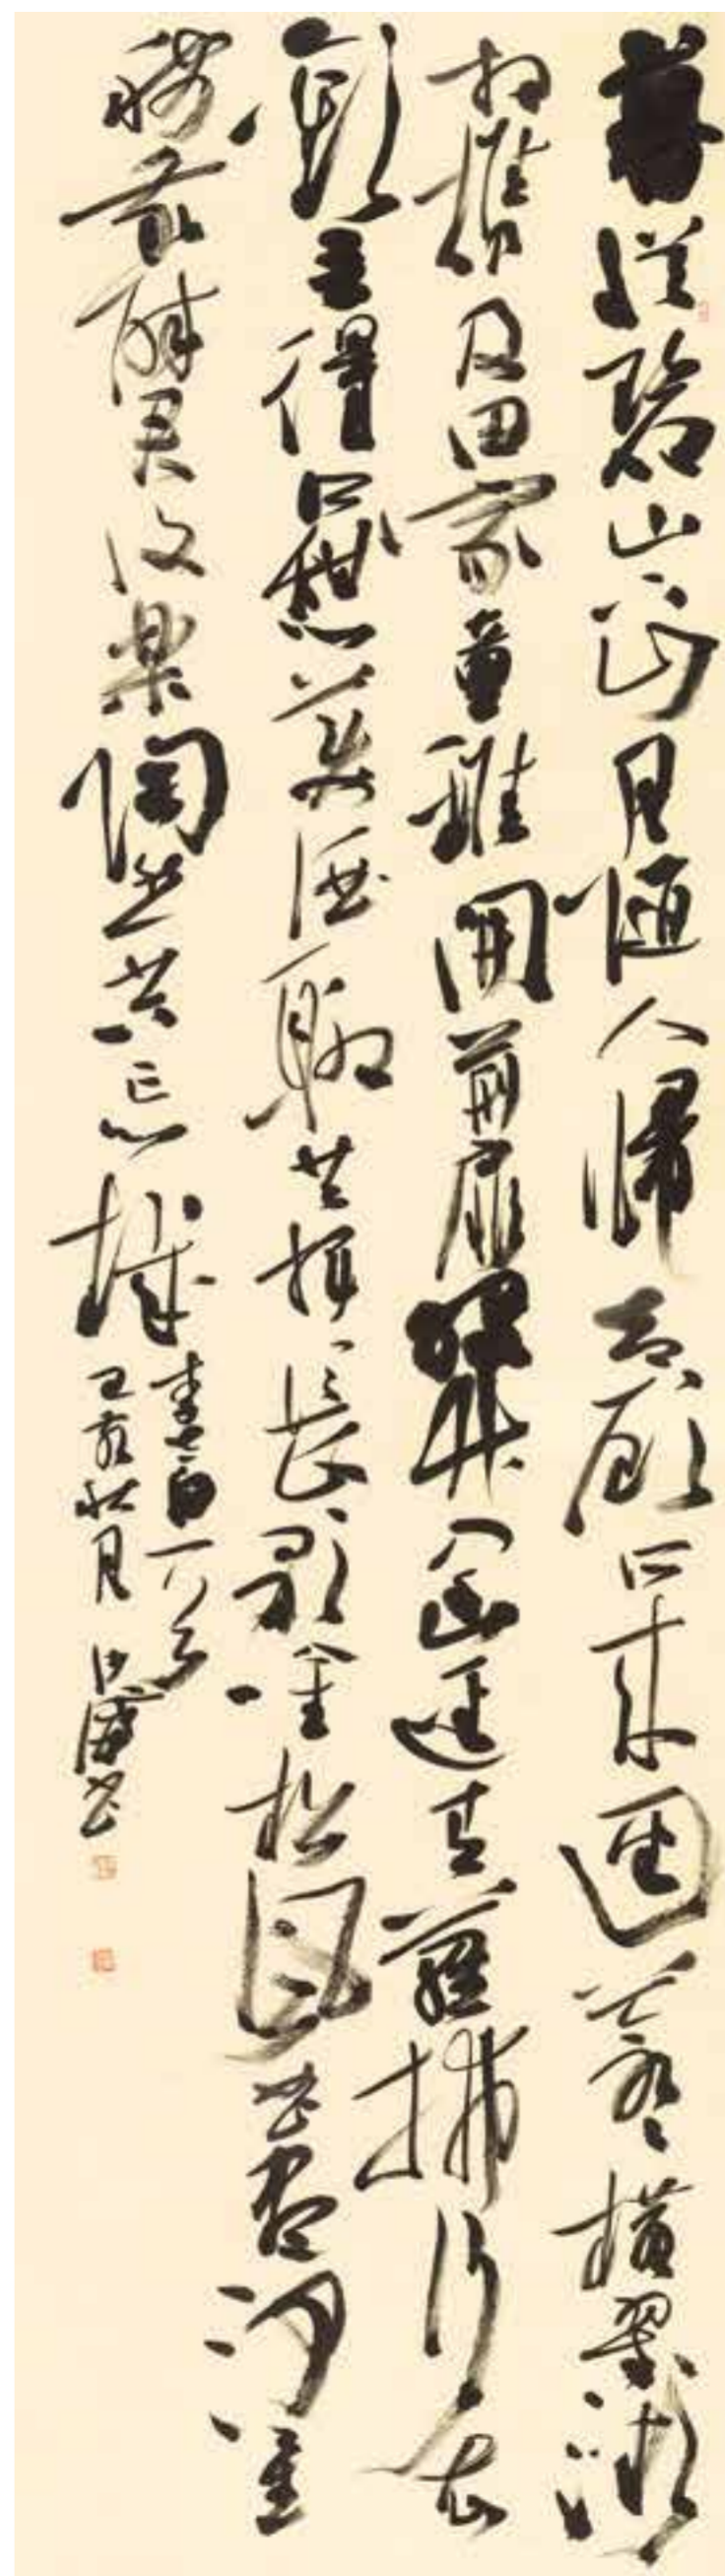 暮從碧山〻下月隨人歸却顧所來徑蒼〻橫翠微
相攜及田家童稚開荊扉綠竹入幽徑青蘿拂行衣
歡言得所憩美酒聊共揮長歌吟松風曲盡河星
稀我醉君復樂陶然共忘機
李太白
己亥秋月 書